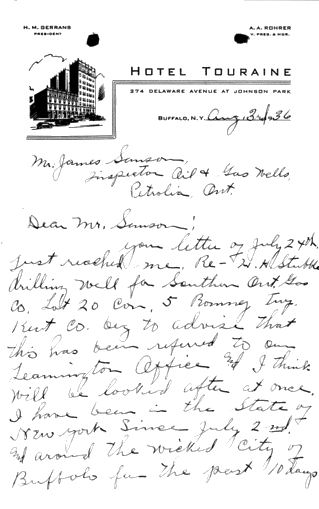 H. M. GERRANS
PRESIDENT
A. A. ROHRER
V. PRES. & MGR.
HOTEL TOURAINE
274 DELAWARE AVENUE AT JOHNSON PARK
BUFFALO, N.Y. Aug. 3rd 36
Mr. James Samson,
Inspector Oil & Gas Wells,
Petrolia, Ont.
Dear Mr. Samson;
your letter of July 24th.
Just reached me. Re- H. H. Stubbs
drilling well for Southern Ont. Gas
Co. Lot 20 Con. 5 Romney Twp.
Kent Co. beg to advise that
this has been referred to our
Leamington Office and I think
will be looked after at once.
I have been in the State of
New York since July 2nd.
and around the wicked City of
Buffalo for the past 10 days